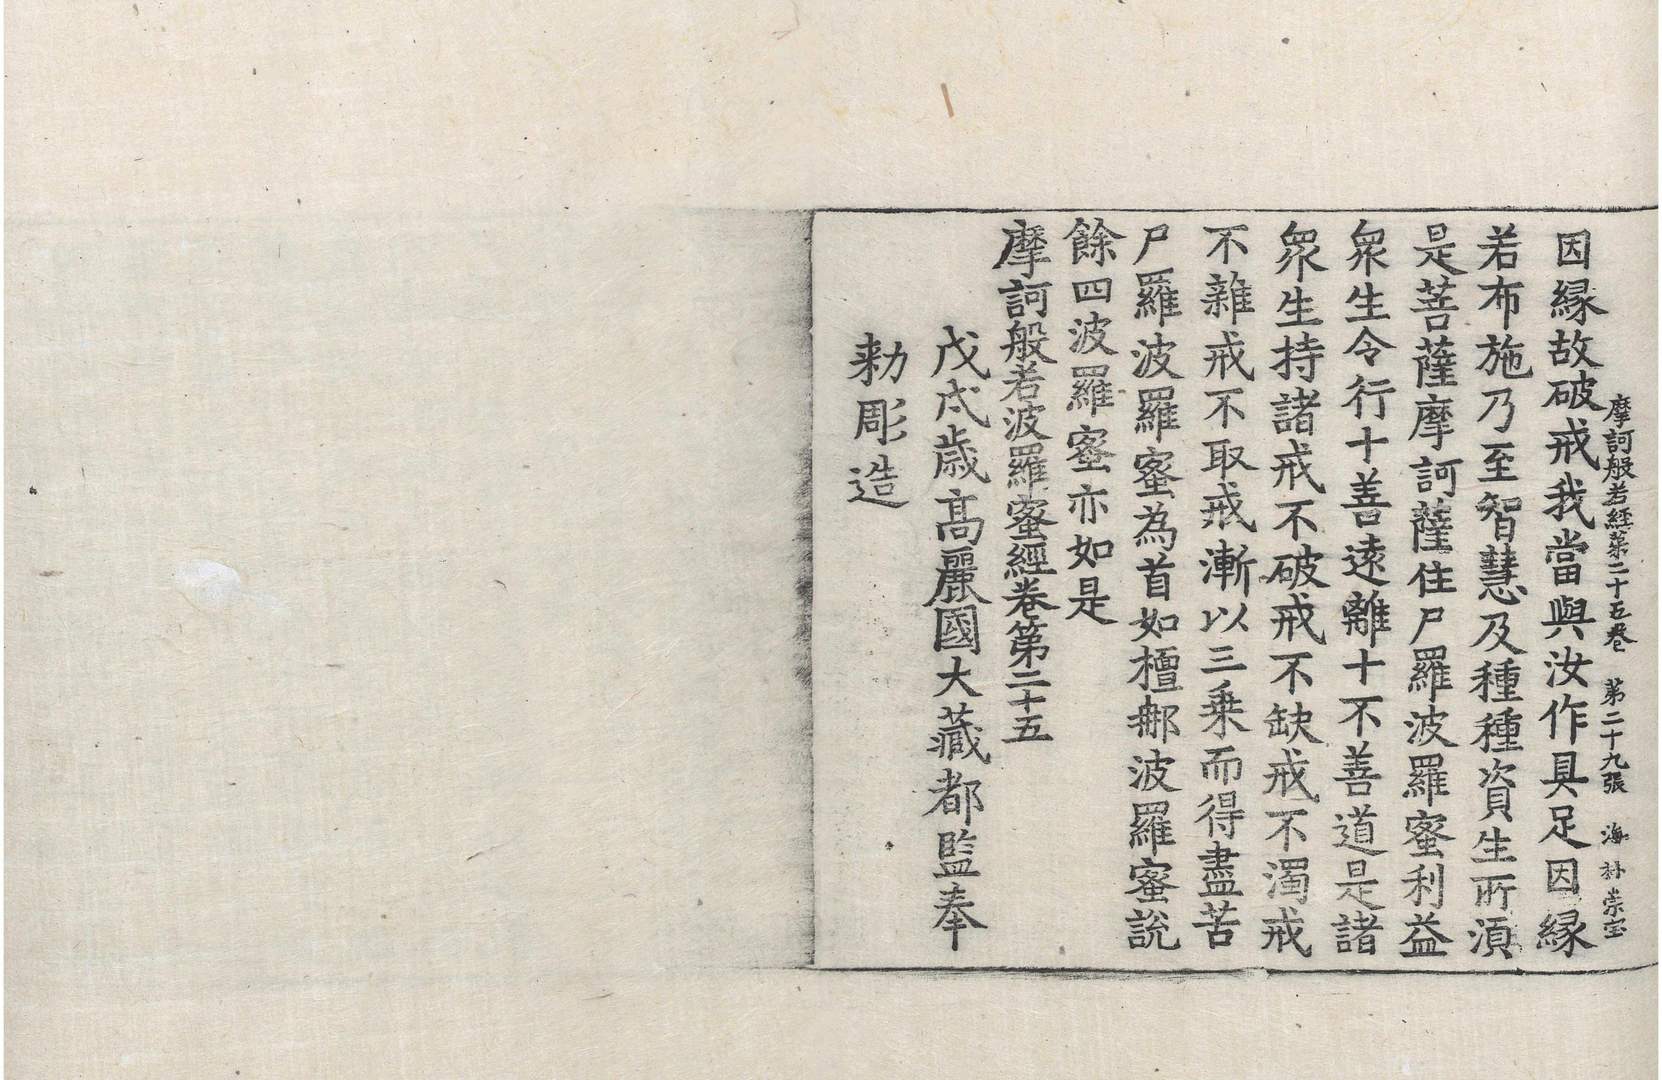 摩訶般若經第二十五卷 第二十九張 海 朴崇宝
因縁故破戒我當與汝作具足因縁
若布施乃至智慧及種種資生所須
是菩薩摩訶薩住尸羅波羅蜜利益
衆生令行十善遠離十不善道是諸
衆生持諸戒不破戒不缺戒不濁戒
不雜戒不取戒漸以三乗而得盡苦
尸羅波羅蜜為首如檀那波羅蜜說
餘四波羅蜜亦如是
摩訶般若波羅蜜經卷第二十五
戊戌歲高麗國大藏都監奉
勑彫造